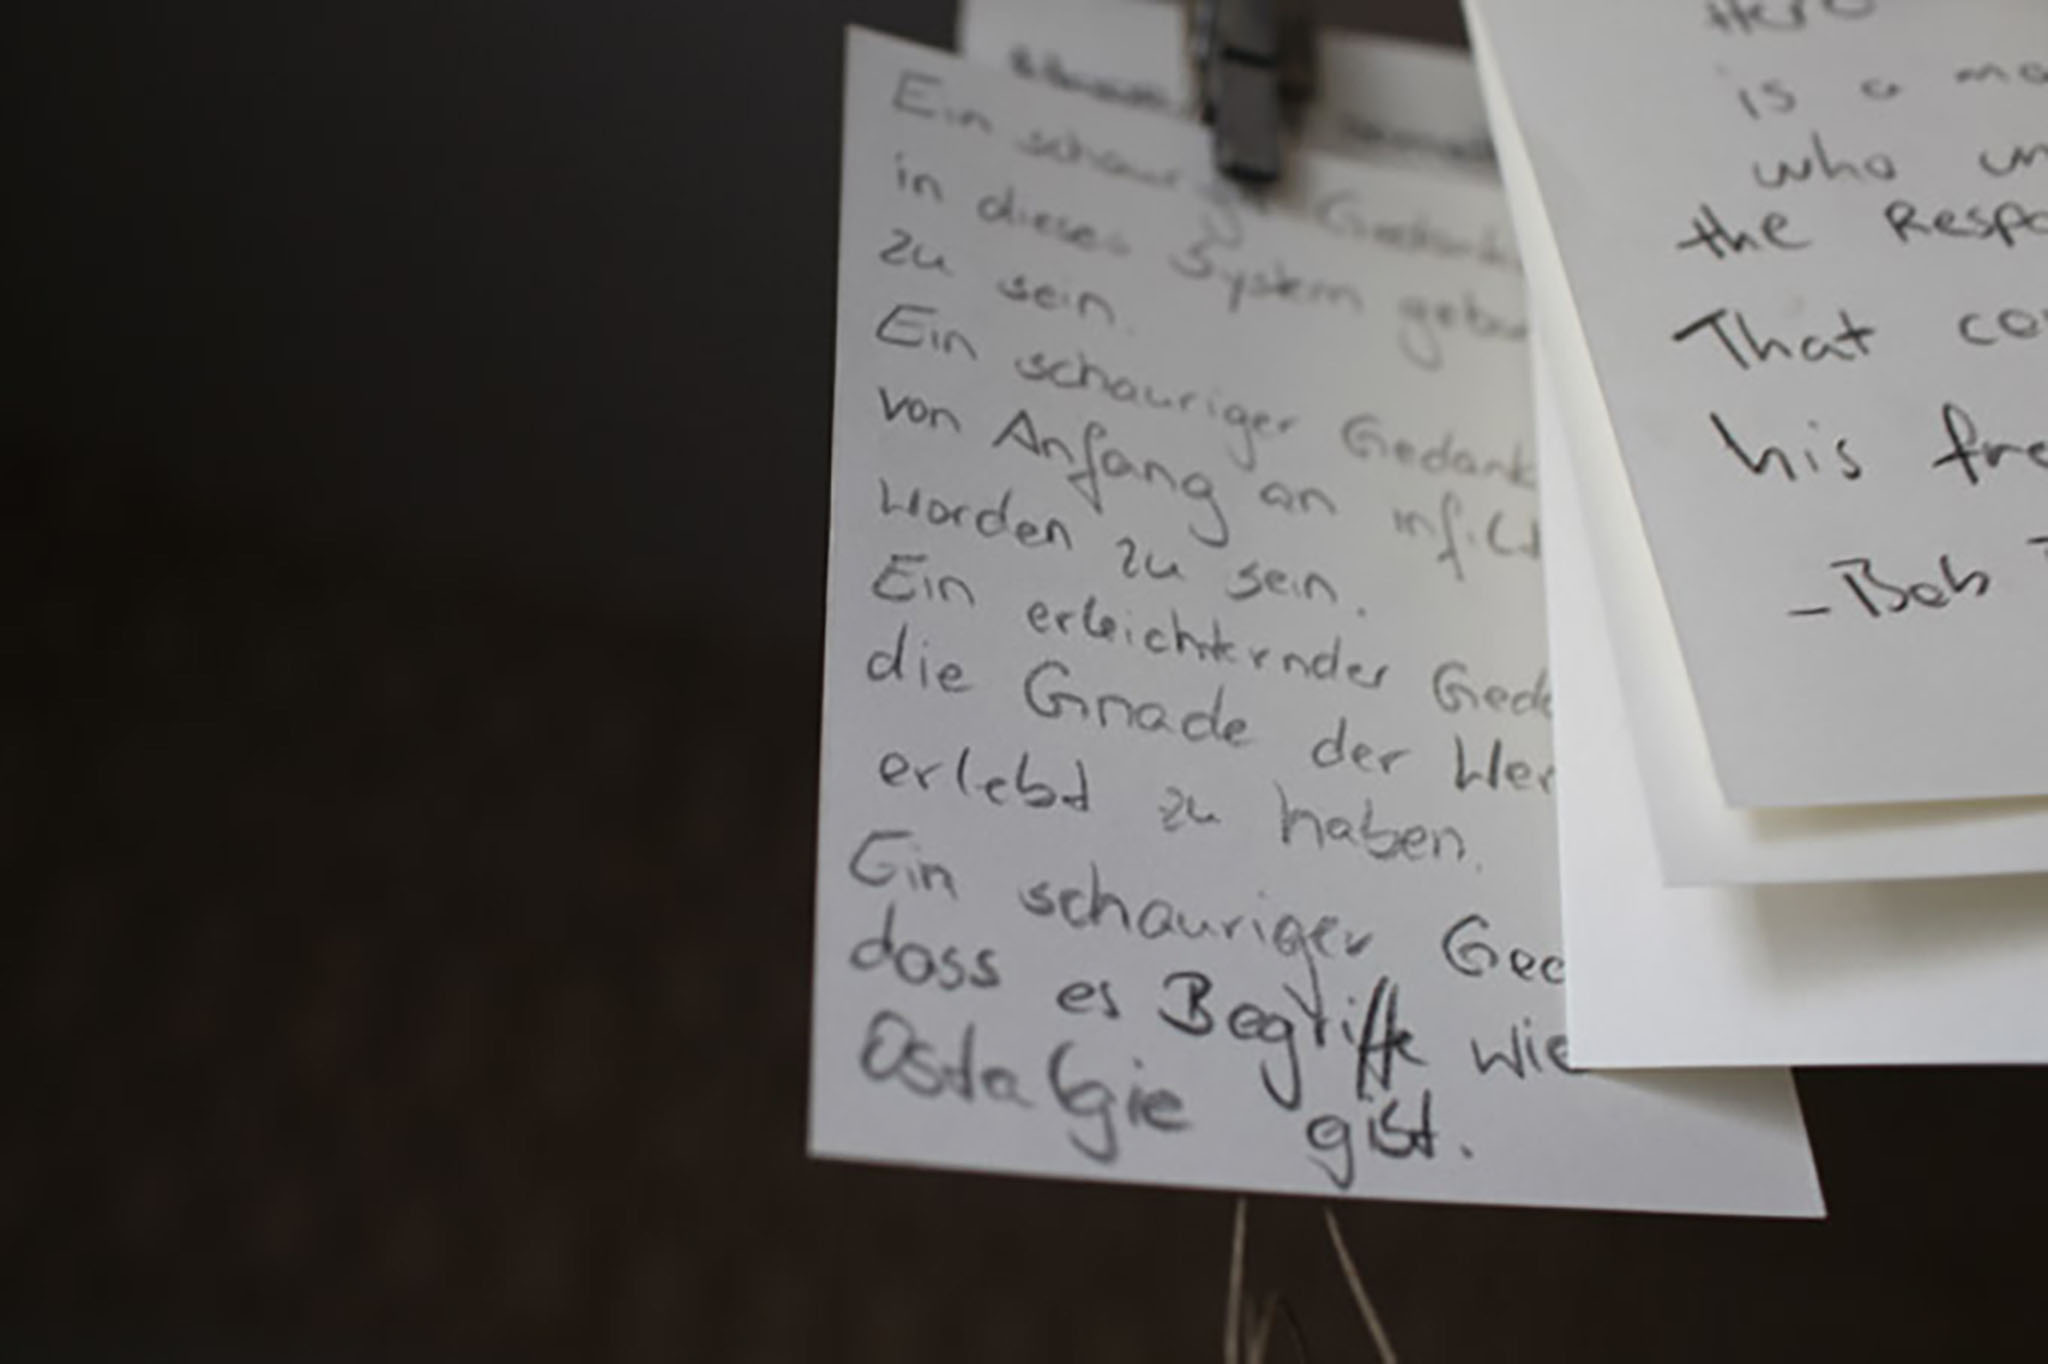 Ein schauriger Gedanke
in dieses System gebor
zu sein.
Ein schauriger Gedank
von Anfang an infilt
worden zu sein.
Ein erleichternder Geda
die Gnade der Wen
erlebt zu haben.
Ein schauriger Ged
dass es Begriffe wie
Ostalgie gibt.
Here
is a ma
who un
the Respo
That co
his fre
- Bob